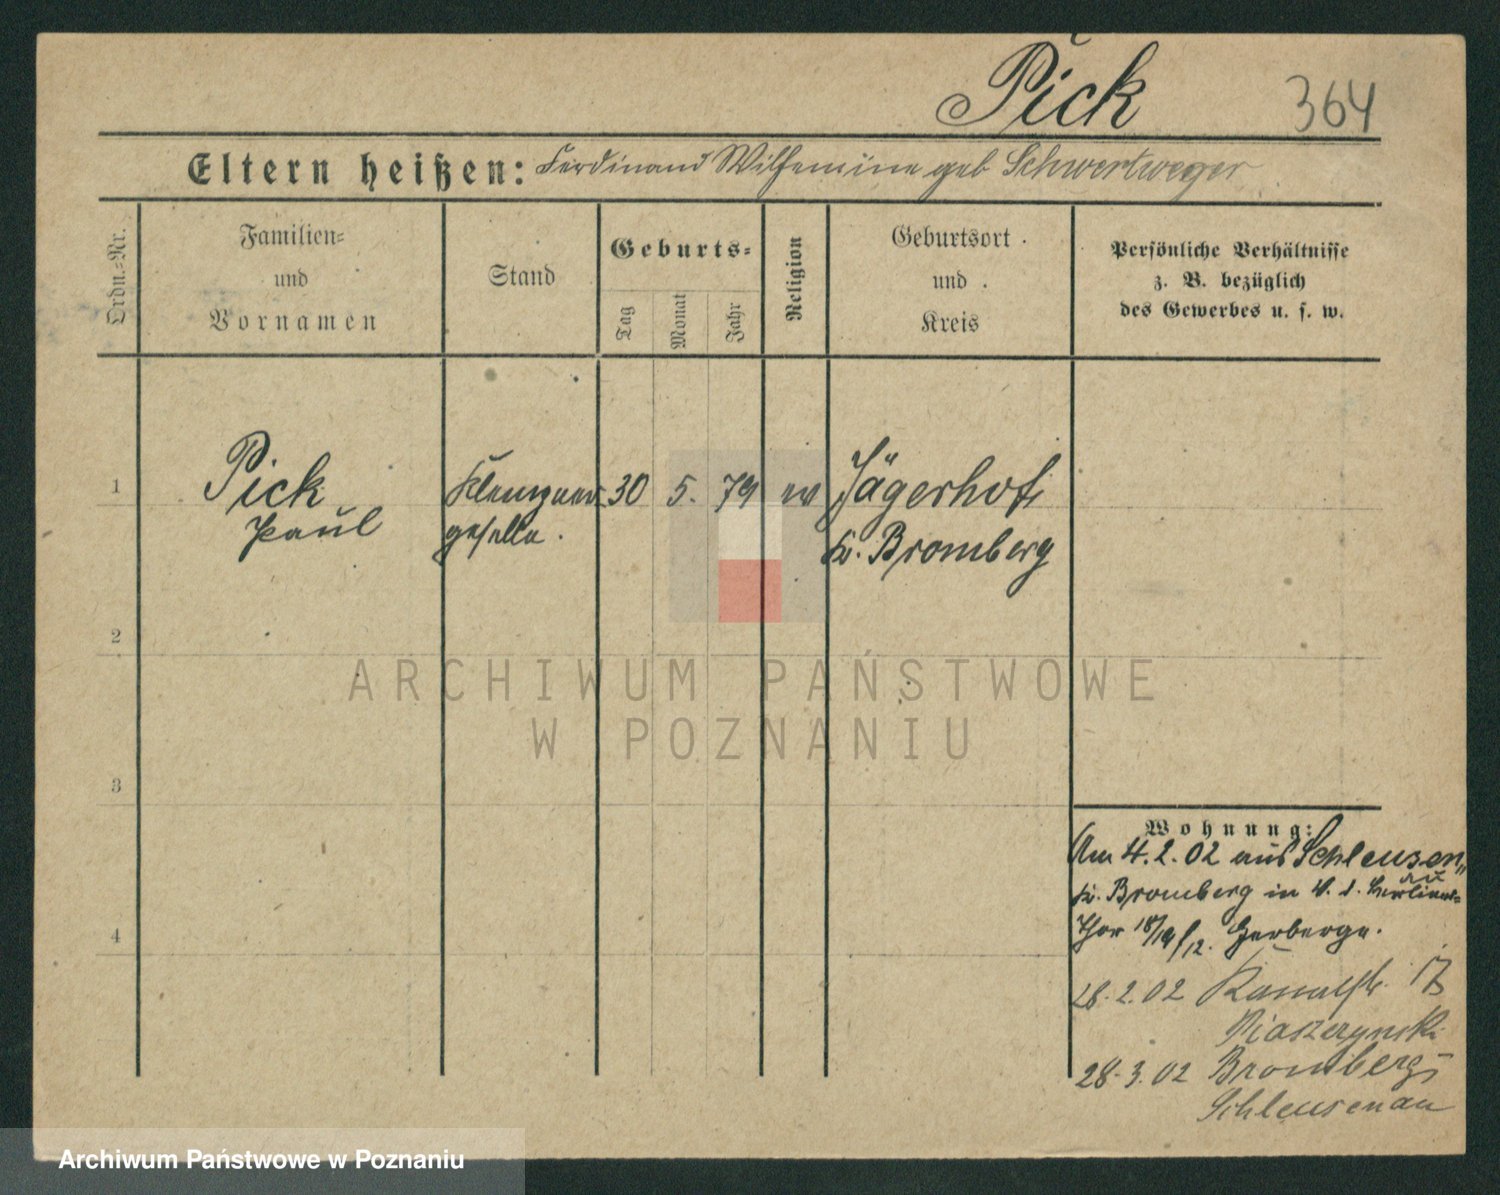 Pick 364
Eltern heißen: Ferdinand Wilhemine geb Schwertweger
Ordn.=Nr.
Familien=
und
Vornamen
Stand
Geburts=
Tag
Monat
Jahr
Religion
Geburtsort
und
Kreis
Persönliche Verhältnisse
z. B. bezüglich
des Gewerbes u. s. w.
1 Pick Klempner 30 5. 79 ev Jägerhof
Paul geselle. Kr. Bromberg
2
3
4
Wohnung:
Am 4.2.02 aus Schleusen„
au
Kr. Bromberg in V. 1. Berliner=
Thor 18/19/12. Herberge.
28.2.02 Kanalstr. 17
Piaszczynski
28.3.02 Bromberg
Schleusenau
ARCHIWUM PAŃSTWOWE
W POZNANIU
Archiwum Państwowe w Poznaniu